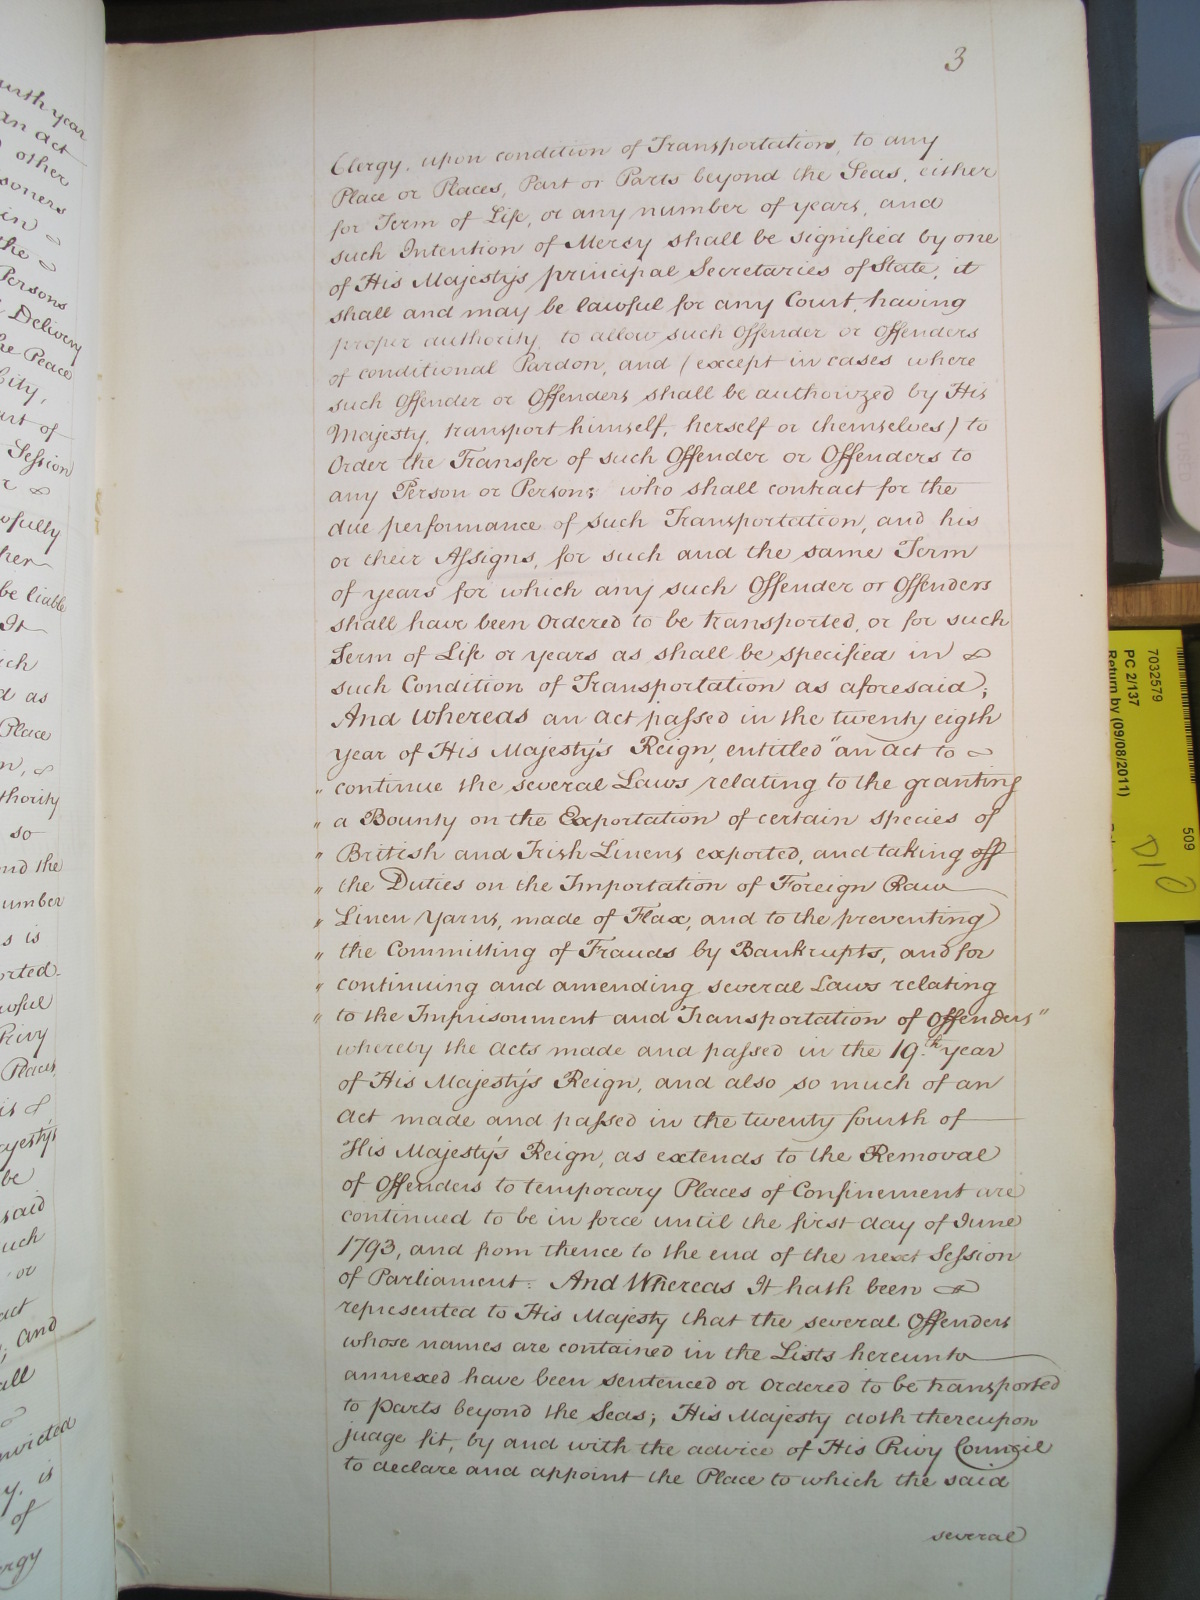 3
Clergy, upon condition of Transportation, to any
Place or Places, Part or Parts beyond the Seas, either
for Term of Life, or any number of years, and
such Intention of Mercy shall be signified by one
of His Majesty's principal Secretaries of State; it
shall and may be lawful for any Court, having
proper authority, to allow such Offender or Offenders
of conditional Pardon, and (except in cases where
such Offender or Offenders shall be authorized by His
Majesty, transport himself, herself or themselves) to
Order the Transfer of such Offender or Offenders to
any Person or Persons who shall contract for the
due performance of such Transportation, and his
or their Assigns, for such and the same Term
of years for which any such Offender or Offenders
shall have been Ordered to be transported, or for such
Term of Life or years as shall be specified in
such Condition of Transportation as aforesaid;
And Whereas an act passed in the twenty eigth
Year of His Majesty's Reign, entitled "an act to
" continue the several Laws relating to the granting
" a Bounty on the Exportation of certain species of
" British and Irish Linens exported, and taking off
" the Duties on the Importation of Foreign Raw
" Linen Yarns, made of Flax, and to the preventing
" the Committing of Frauds by Bankrupts, and for
" continuing and amending several Laws relating
" to the Imprisonment and Transportation of Offenders"
whereby the acts made and passed in the 19.th year
of His Majesty's Reign, and also so much of an
act made and passed in the twenty fourth of
His Majesty's Reign, as extends to the Removal
of Offenders to temporary Places of Confinement are
continued to be in force until the first day of June
1793, and from thence to the end of the next Session
of Parliament: And Whereas It hath been
represented to His Majesty that the several Offenders
whose names are contained in the Lists hereunto
annexed have been sentenced or Ordered to be transported
to parts beyond the Seas; His Majesty doth thereupon
judge fit, by and with the advice of His Privy Council
to declare and appoint the Place to which the said
several
ursh year
an act
other
soners
in
the
Persons
Delivery
he Peace
City,
art of
Session
r
ofully
her
be liable
It
ich
d as
Place
n,
thority
so
nd the
umber
s is
orted
wful
Privy
Places
is
ajesty's
be
said
uch
or
act
; and
all
nvicted
y. is
of
ergy
7032579
PC 2/137
Return by (09/08/2011)
509
D10